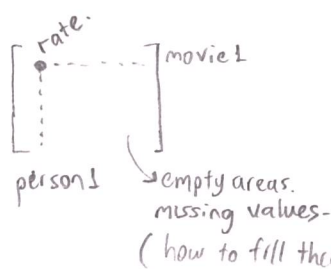 rate.
movie1
person1
empty areas.
missing values-
(how to fill the